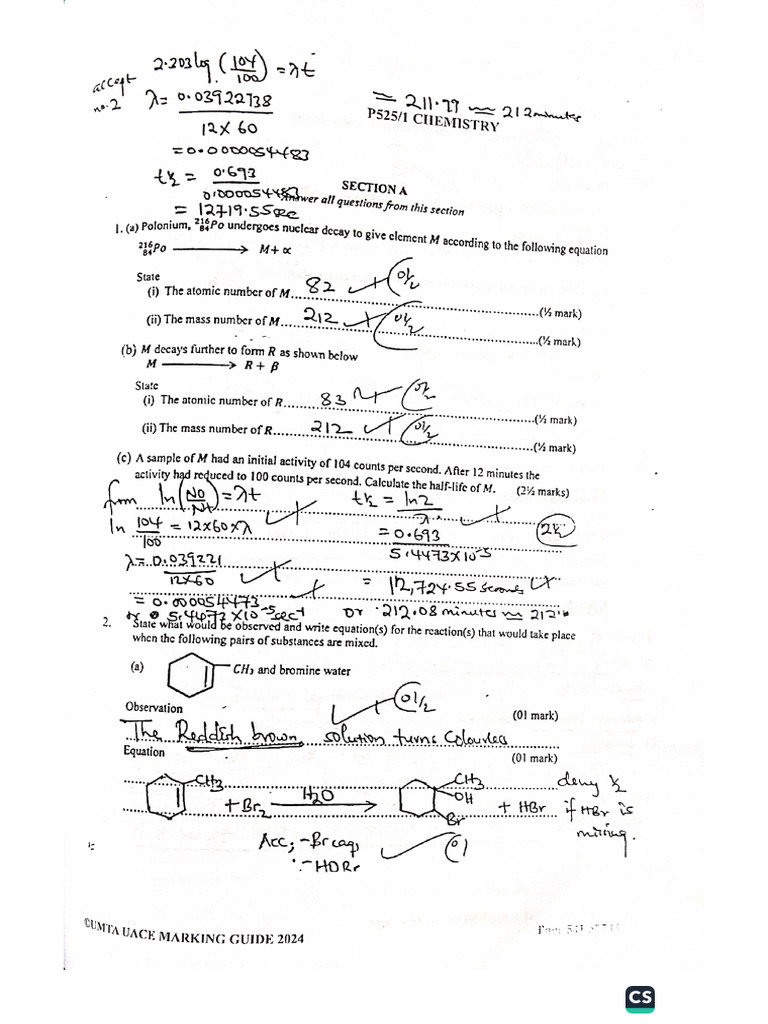 2.203log (104/100) = λt
accept
no.2
λ = 0.03922738
12 x 60
= 0.0000054483
= 211.79 ≈ 212 minutes
P525/1 CHEMISTRY
t½ = 0.693
0.000054483
= 12719.55sec
SECTION A
Answer all questions from this section
1. (a) Polonium, ²¹⁶₈₄Po undergoes nuclear decay to give element M according to the following equation
²¹⁶₈₄Po ⟶ M + ∝
State
(i) The atomic number of M 82 ✓ 0½ (½ mark)
(ii) The mass number of M 212 ✓ 0½ (½ mark)
(b) M decays further to form R as shown below
M ⟶ R + β
State
(i) The atomic number of R 83 ✓ 0½ (½ mark)
(ii) The mass number of R 212 ✓ 0½ (½ mark)
(c) A sample of M had an initial activity of 104 counts per second. After 12 minutes the
activity had reduced to 100 counts per second. Calculate the half-life of M. (2½ marks)
from ln(No/Nt) = λt
t½ = ln2/λ
ln 104/100 = 12x60xλ
= 0.693
5.4473x10⁻⁵
2½
λ = 0.039221
12x60
= 12,724.55 seconds
= 0.000054473
or 212.08 minutes ≈ 212
5.4473 x10⁻⁵sec⁻¹
2. State what would be observed and write equation(s) for the reaction(s) that would take place
when the following pairs of substances are mixed.
(a) CH₃ and bromine water
Observation 01/2 (01 mark)
The Reddish brown solution turns Colourless
Equation (01 mark)
CH₃ + Br₂ H₂O ⟶ CH₃ OH Br + HBr
deny ½
if HBr is
missing.
Acc; -Br₂(aq)
(01)
©UMTA UACE MARKING GUIDE 2024
CS